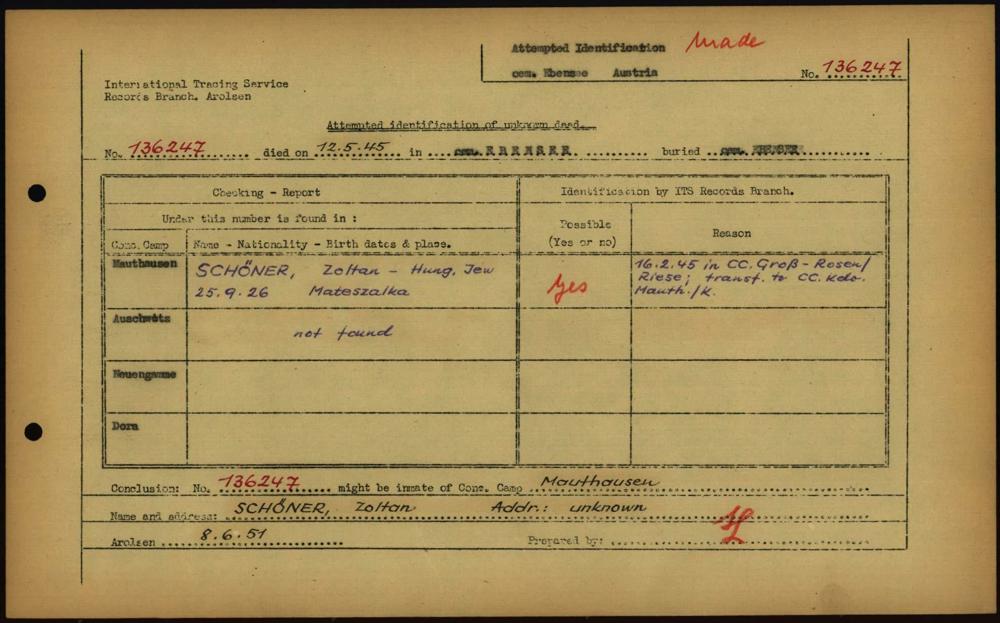 Attempted Identification Made
cem. Ebensee Austria
No. 136247
International Tracing Service
Records Branch. Arolsen
Attempted identification of unknown dead.
No. 136247 died on 12.5.45 in cem. EBENSEE buried cem. EBENSEE
Checking - Report
Identification by ITS Records Branch.
Under this number is found in :
Possible
(Yes or no)
Reason
Conc. Camp
Name - Nationality - Birth dates & place.
Mauthausen
SCHÖNER, Zoltan - Hung. Jew
25.9.26 Mateszalka
Yes
16.2.45 in CC. Groß-Rosen/
Riese; transf. to CC. Kdo.
Mauth./K.
Auschwitz
not found
Neuengamme
Dora
Conclusion: No. 136247 might be inmate of Conc. Camp Mauthausen
Name and address: SCHÖNER, Zoltan Addr.: unknown
Arolsen 8.6.51 Prepared by: